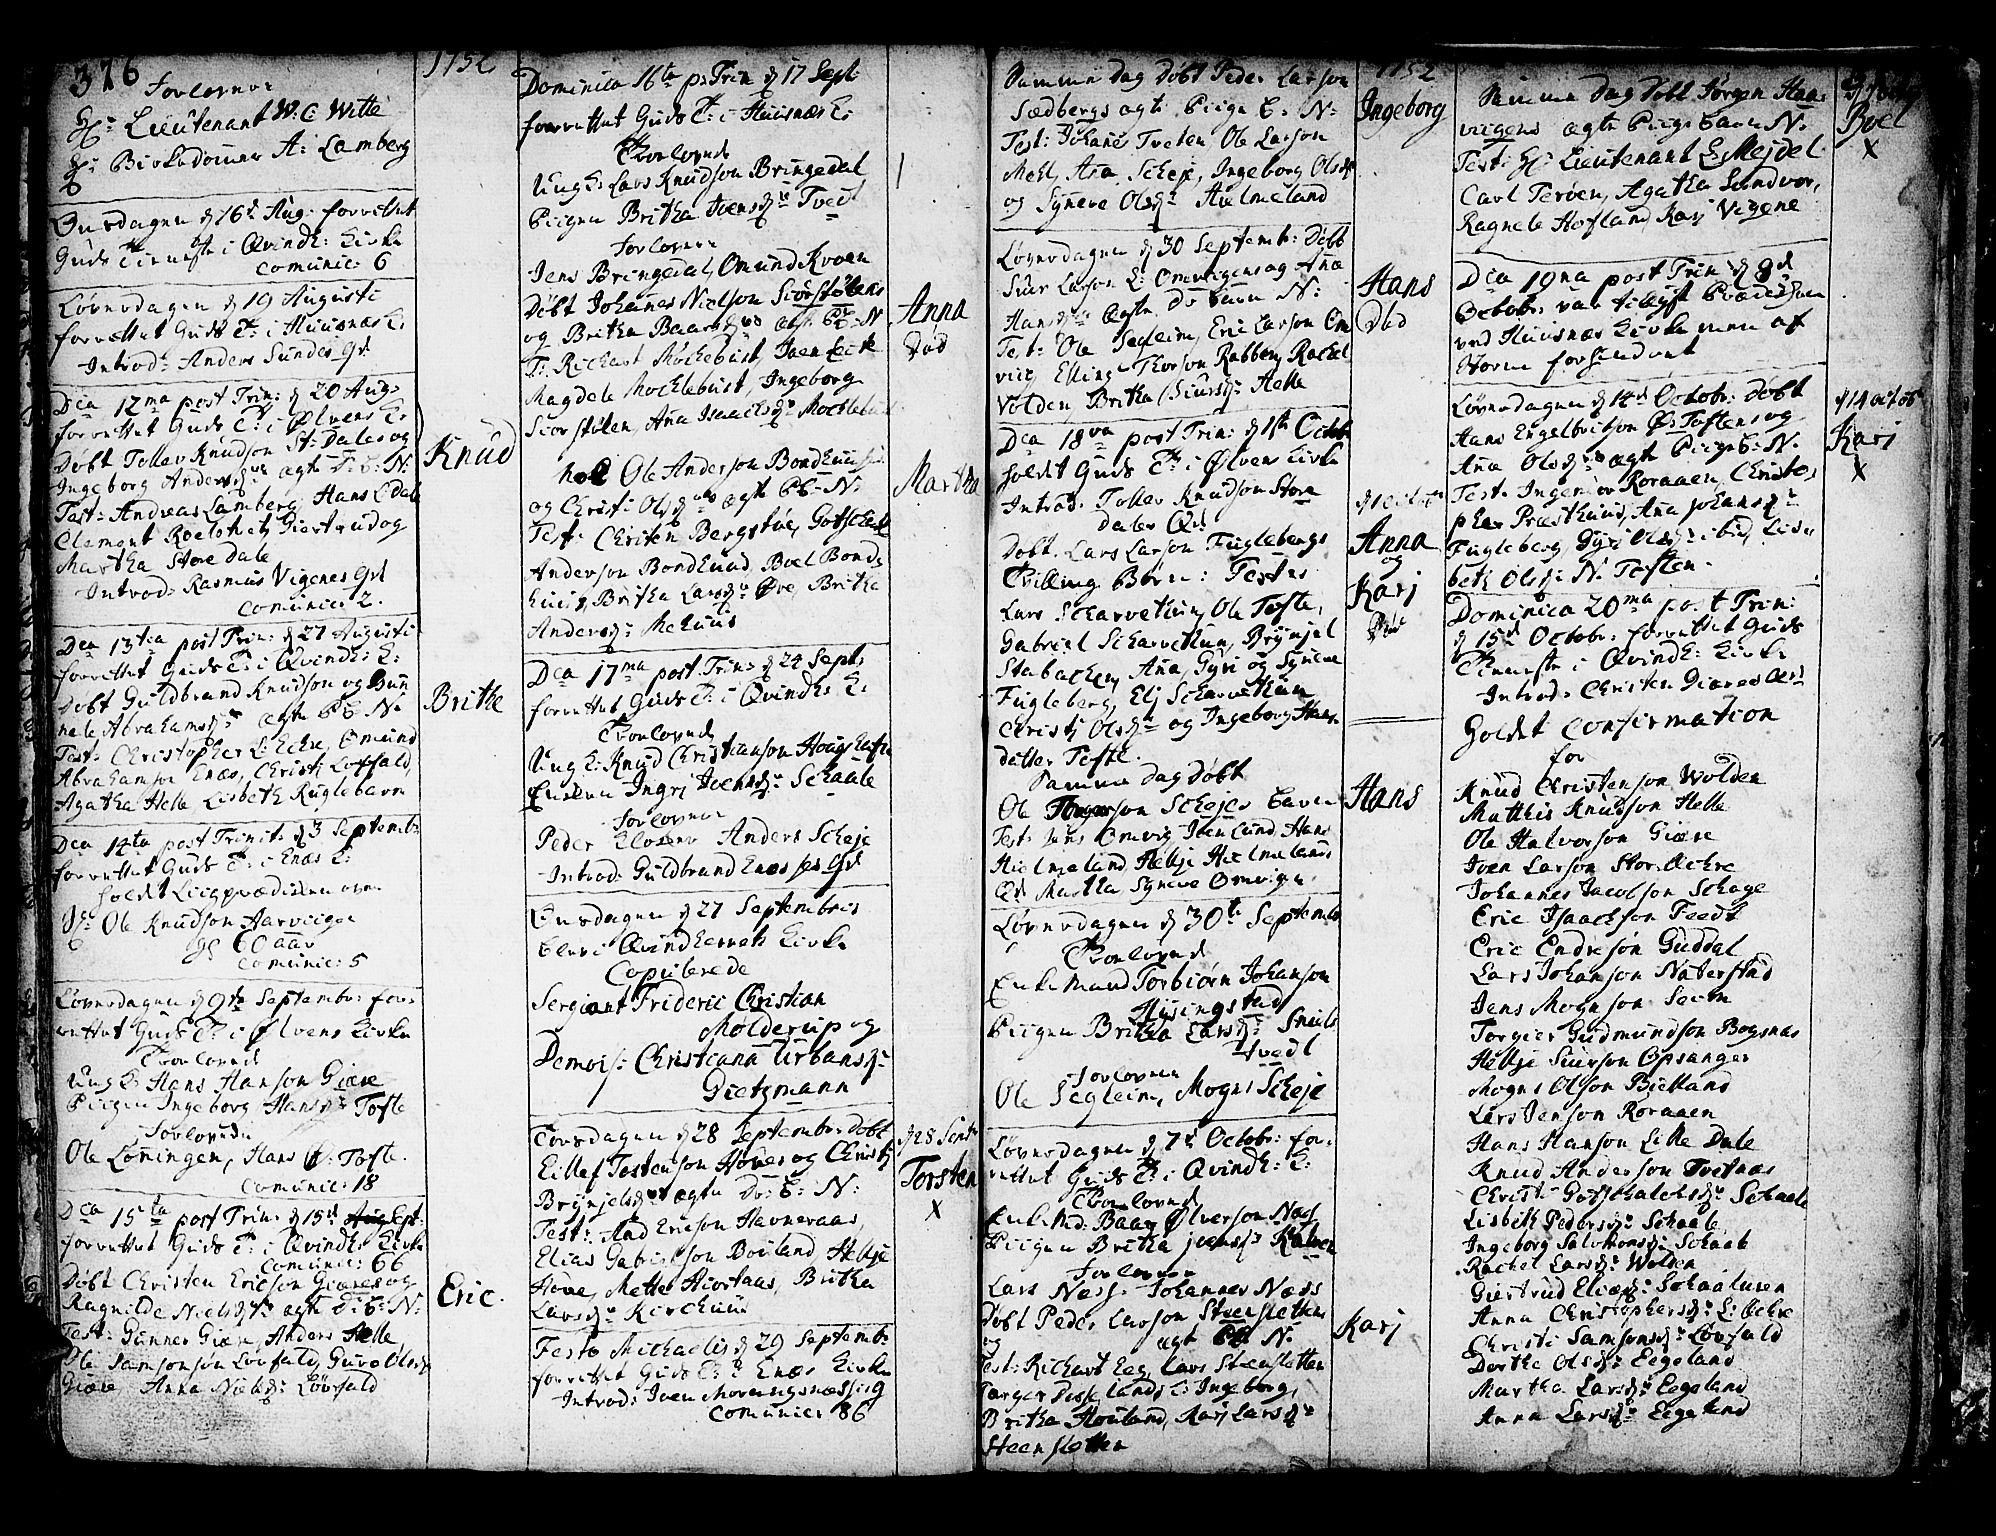 376
1752
Forlovere
Hr: Lieutenant W. C: Witte
Hr: Birkedommer A: Lamberg
Onsdagen d 16d Aug: forrettet
Guds Tieneste i Qvindh: Kirke
Comunic: 6
Løverdagen d 19 Augusti
forrettet Guds T: i Huusnæs K:
Introd: Anders Sundes Qd
Dca 12ma post Trin: d 20 Aug:
forrettet Guds T: i Ølvens K:
Døbt Tollev Knudson St: Dales og
Ingeborg Andersdr ægte D: B: N:
Knud
Test: Andreas Lamberg, Hans L: Dale
Clement Roelohet, Giertrud og
Martha Store Dale
Introd: Rasmus Vigenes Qd
Comunic: 2.
Dca 13tia post Trin: d 27 Augusti
forrettet Guds T: i Qvindh: K:
Døbt Guldbrand Knudson og Gun
nele Abrahamsdr ægte PB: N:
Brithe
Test: Christopher L: Echre, Omund
Abrahamson Enæs, Christi Løfald,
Agatha Helle Lisbeth Ruglebarn
Dca 14ta post Trinit: d 3 Septembr:
forrettet Guds T: i Enæs K:
holdt Liigprædiken over
Sl: Ole Knudson Aarviigen
gl 60 aar
Comunic: 5
Løverdagen d 9de Septembr: for-
rettet Guds T: i Ølvens Kirke
Trolovede
Ung K: Hans Hanson Giære
Piigen Ingeborg Hansdr Tofte
Forlovede
Ole Løningen, Hans Ø: Tofte.
Comunic: 18
Dca 15ta post Trin: d 15d Sept:
forrettet Guds T: i Qvindh: Kirke
Comunic: 66
Døbt Christen Ericson Giæres og
Ragnilde Nielsdr ægte D: B: N:
Eric.
Test: Gunner Giære, Anders Helle
Ole Samsonsøn Løvfald, Guro Olsdr
Giære Anna Nielsdr: Løvfald
Dominica 16ta p: Trin d 17 Sept:
forrettet Guds T: i Huusnæs K:
Trolovede
Ung K: Lars Knudson Bringedal
Piigen Britha Iversdr Tvedt
Forlovere
Jens Bringedal, Omund Kroen
Døbt Johannes Nielson Siorstølens
og Britha Baarsdr ægte PB: N
Anna
Død
T: Richart Møchebust, Iven Eide
Magdele Mochlebust, Ingeborg
Siorstølen, Ana Isaachsdr Mochlebust
Noe Ole Anderson Bondhuus
og Christi Olsdr ægte PB: N:
Martha
Test: Christen Bergstøe, Gotschalk
Anderson Bondhuus, Boel Bond-
huus, Britha Larsdr Øve Britha
Andersdr: Mehuus
Dca 17ma post Trin: d 24 Sept:
forrettet Guds T: i Qvindhs K:
Trolovede
Ung K: Knud Christianson Haugs
Enken Ingri Ivensdr Schaale
Forlovere
Peder Anders Scheje
Introd: Guldbrand Enæses Qd
Onsdagen d 27 Septembris
blevi Qvindherrets Kirke
Copulerede
Sergiant Frideric Christian
Mølderup og
Demois: Christiana Urbansdr:
Dietzmann
Torsdagen d 28 Septembr: døbt
d 28 Septr
Eillef Torstenson Hoves og Christi
Torsten
x
Bryngelsdr ægte Dr: B: N:
Test: And Ericson Havneraas,
Elias Gabrielson Boiland, Heltje
Hove, Mette Hiortaas, Britha
Larsdr Kirchuus
Festo Michaelis d 29 Septembr:
forrettet Guds T: i Enæs Kirke
Introd: Iven Qd
Comunic: 86
Samme dag døbt Peder Larson
1752
Sædbergs ægte Piige B: N:
Ingeborg
Test: Johanes Treten, Ole Larson
Mehl, Ana Scheje, Ingeborg Olsdr
og Syneve Olsdr Hielmeland
Løverdagen d 30 Septembr: døbt
Siur Larson L: Omvigens og Ane
Hans
Død
Hansdr ægte Dr: barn N:
Test: Ole Segleim, Eric Larson Om
vig, Elling Thorson Rabben, Rachel
Volden, Britha Siursdr: Helle
Dca 18va post Trin: d 1ste Octobr
holdet Guds T: i Ølvens Kirke
Introd: Tollev Knudson Store
dales Qd
d 1 Octobr
Døbt Lars Larson Fuglebergs
Anna
og
Karj
Død
Tvilling Børn: Testes
Lars Scharvethun, Ole Tofte,
Gabriel Scharvethun, Brynjel
Stabachen, Ana Gyri og Syneve
Fugleberg, Elj Scharvethun
Christj Olsdr og Ingeborg Hans-
datter Tofte.
Samme dag døbt
Ole Scheies barn
Hans
Test: Jens Omvig, Iven Lund, Hans
Hielmeland, Heltje Hielmelands
Qd Martha Syneve Omvigen
Løverdagen d 30te Septembr
Trolovede
Enkemand Torbiørn Johanson
Hysingstad
Piigen Britha Larsdr: Snils
tvedt
Forlovere
Ole Segleim, Mogns Scheje
Løverdagen d 7d Octobr: for-
rettet Guds T: i Qvindh: K:
Trolovede
Enke Md: Baar Ølverson Næs
Piigen Britha Jensdr
Forlovere
Lars Næss Johannes Næss
Døbt Peder Larson Steenslettens
og ægte PB N:
Karj
Test: Richart Eeg, Lars Steensletten
Torger L: Ingeborg,
Britha Houland, Karj Larsdr
Steensletten
Samme dag døbt Jørgen Hans
viigens ægte Piige barn N.
Boel
x
Test: Hr: Lieutenant L: Mejdel
Carl Terøen, Agatha Sundvor,
Ragnele Hofland, Karj Vigene
Dca 19na post Trin: d 8d
Octobr: var tilliyst Prædichen
ved Huusnæs Kirke men af
Storm forhindret
Løverdagen d 14d Octobr: døbt
d 14 Octobr
Hans Engelbritson Ø: Toftens og
Karj
x
Ana Olsdr ægte Piige B: N.
Test: Ingenior Roraaen, Christo-
pher Præsthuus, Ana Johansdr
Fugleberg, Gyri Olsdr: ibid, Lisa-
beth Olsdr: N. Toften.
Dominica 20ma post Trin:
d 15d Octobr: forrettet Guds
Tieneste i Qvindh: Kirke
Introd: Christen Giæres Qd
Holdet Confirmation
for
Knud Christenson Wolden
Matthis Knudson Helle
Ole Halvorson Giære
Iven Larson Stor. Øchre
Johannes Jacobson Schage
Eric Isaachson Teedt
Eric Endreson Guddal
Lars Johanson Naterstad
Jens Mognson Seim
Torgier Gudmundson Bogsnæs
Heltje Siurson Opsanger
Mogns Olson Bielland
Lars Jenson Roraaen
Hans Hanson Lille Dale
Knud Anderson Tvetnæs
Christi Gotschalchsdr Schaale
Lisbeth Pedersdr Schaale
Ingeborg Salomonsdr Schaale
Rachel Larsdr: Wolden
Giertrud Eliædr: Schaaluren
Anna Christophersdr: L: Øchre
Christi Samsonsdr: Løvfald
Dorthe Olsdr: Eegeland
Martha Larsdr: Eegeland
Anna Larsdr: Eegeland